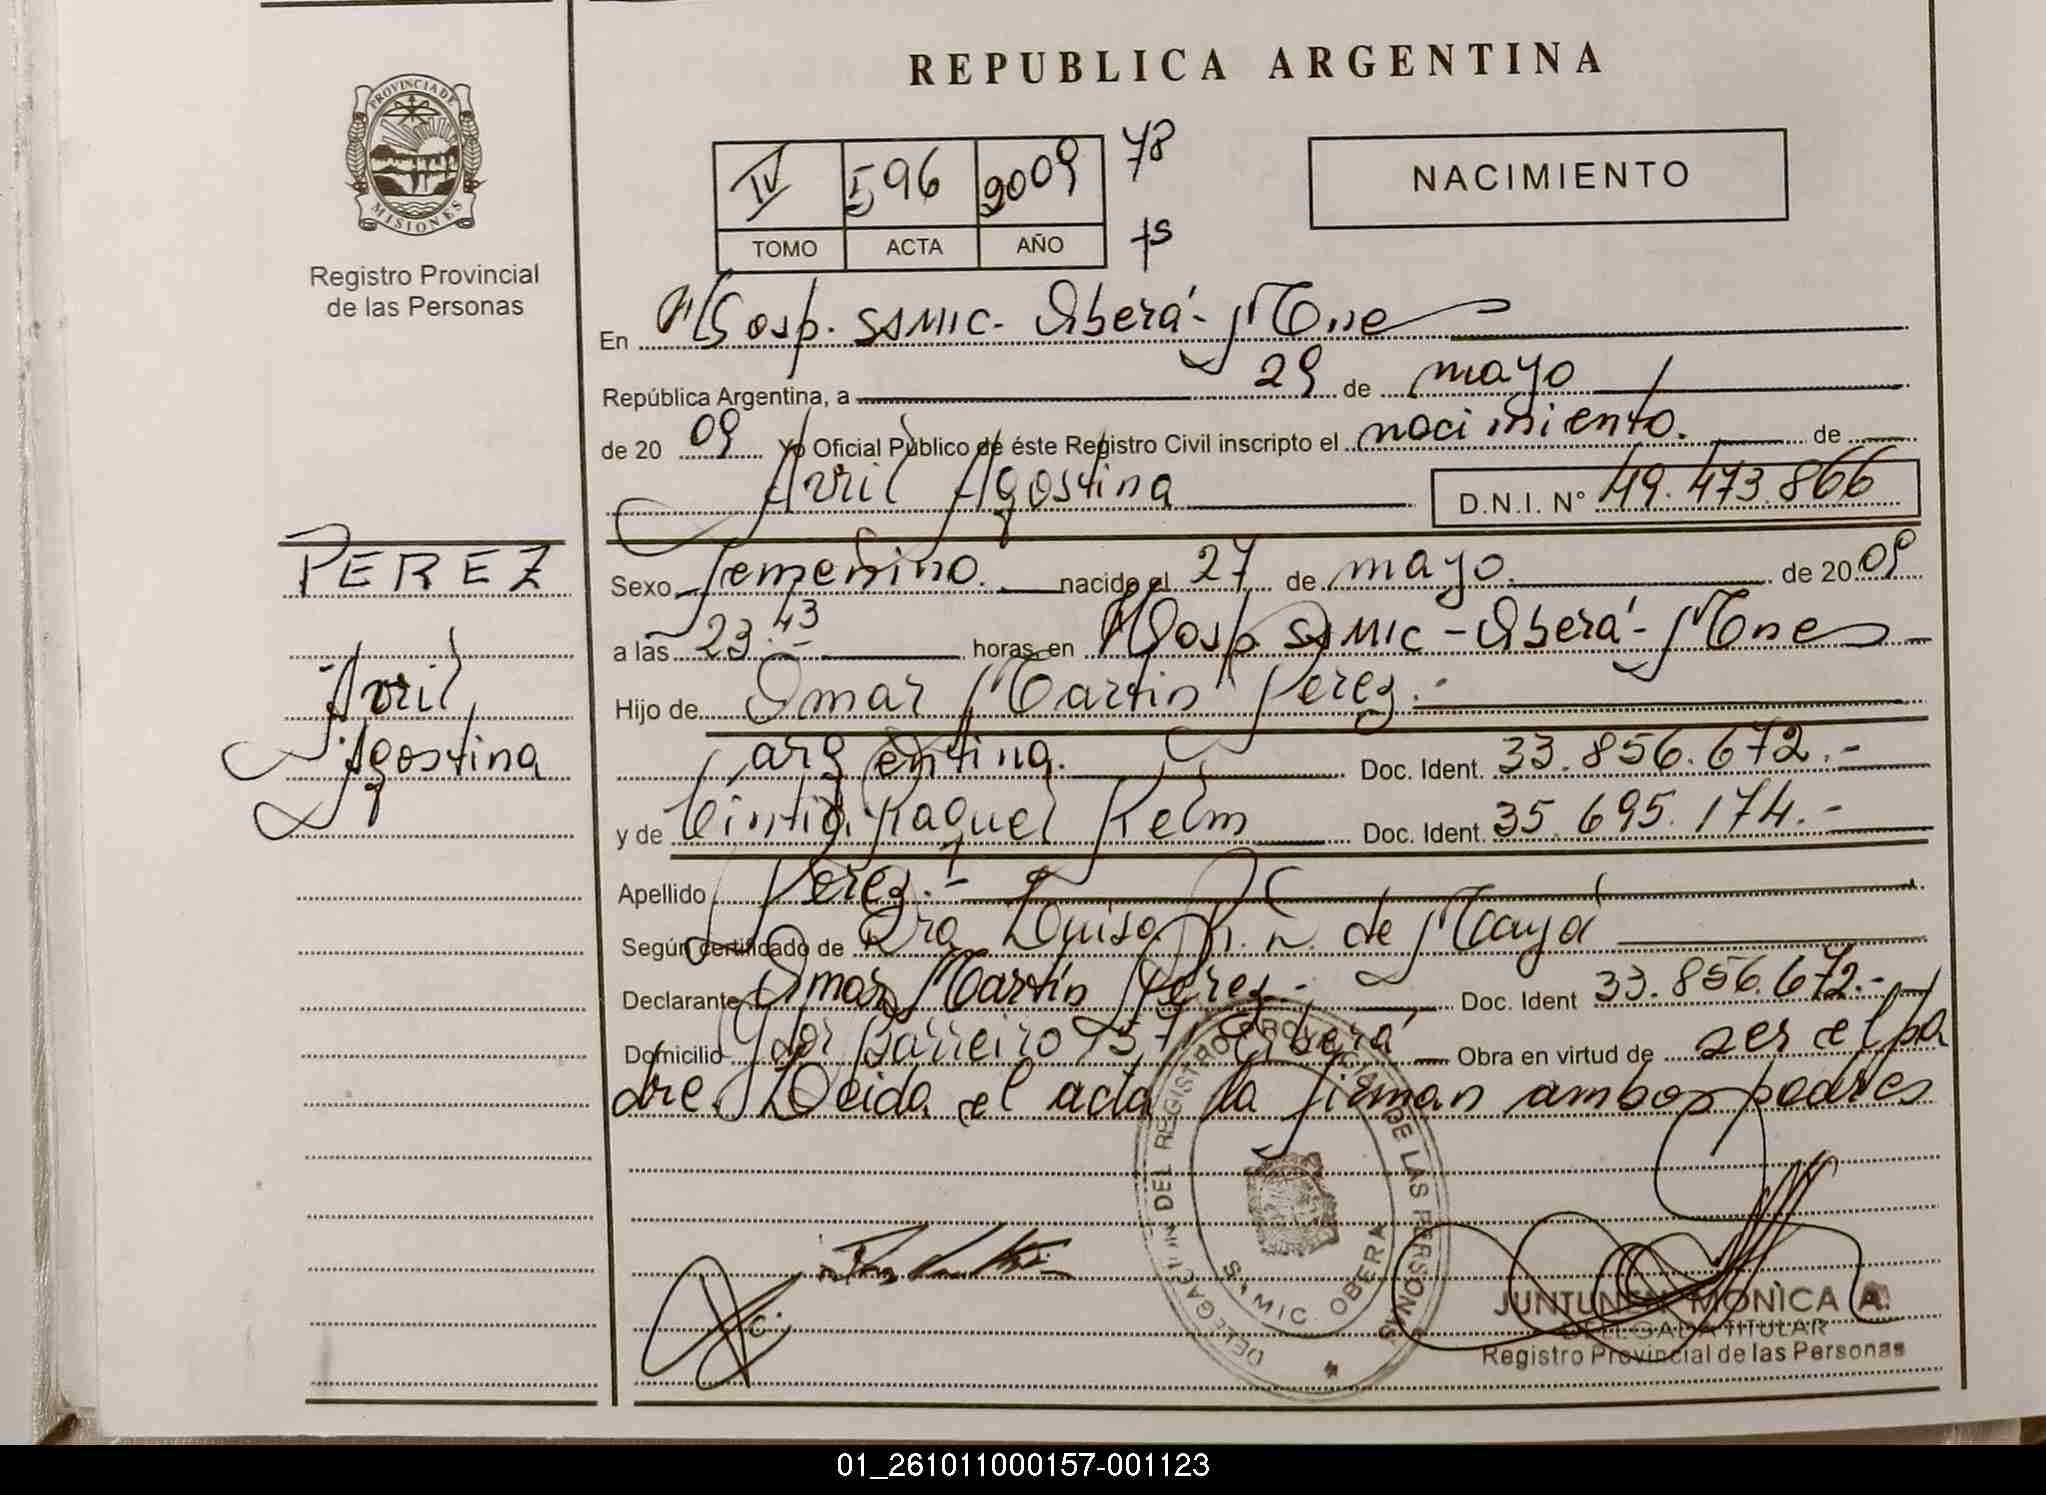 REPUBLICA ARGENTINA
PROVINCIA DE
MISIONES
Registro Provincial
de las Personas
IV 596 2009 78
TOMO ACTA AÑO
NACIMIENTO
En Hosp. SAMIC - Oberá - Mnes
República Argentina, a 29 de mayo
de 20 09 Yo Oficial Público de éste Registro Civil inscripto el nacimiento. de
Avril Agostina D.N.I. Nº 49.473.866
PEREZ
Avril
Agostina
Sexo femenino. nacido el 27 de mayo. de 20 09
a las 23.43 horas en Hosp. SAMIC - Oberá - Mnes
Hijo de Omar Martin Perez.-
argentina. Doc. Ident. 33.856.672.-
y de Cintia Raquel Kelm Doc. Ident. 35.695.174.-
Apellido Perez.-
Según certificado de Dra Luisa R. N. de Mayá
Declarante Omar Martín Perez.- Doc. Ident 33.856.672.-
Domicilio Barreiro Oberá Obra en virtud de ser el pa
dre. Leida el acta la firman ambos padres
DELEGACION DEL REGISTRO PROVINCIAL DE LAS PERSONAS
SAMIC OBERA
JUNTUNEN MONICA A.
DELEGADA TITULAR
Registro Provincial de las Personas
01_261011000157-001123